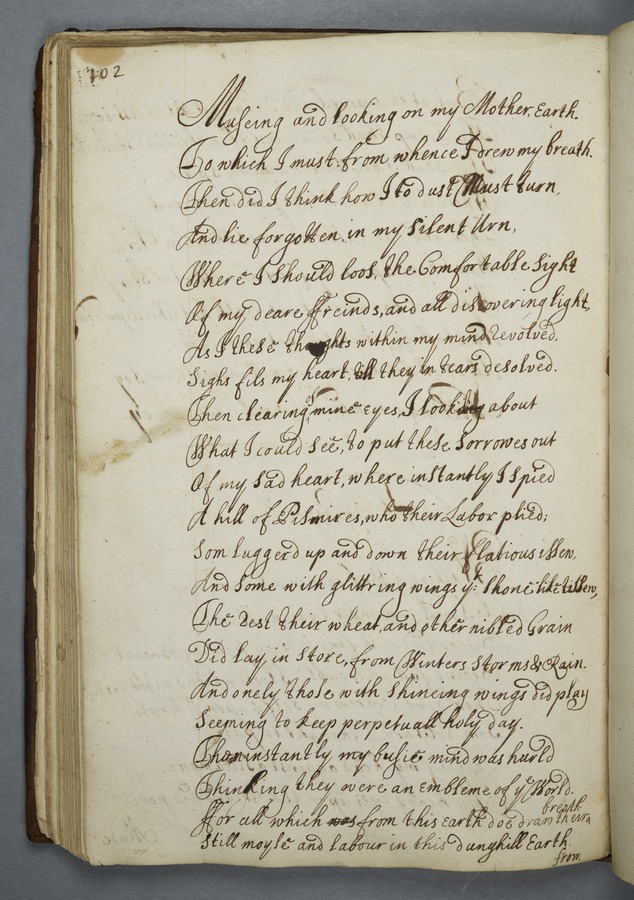 102
Museing and looking on my Mother, Earth.
To which I must, from whence I drew my breath.
Then did I think how I to dust Must turn,
And lie forgotten, in my silent Urn,
Where I should loos, the Comfortable sight
Of my deare ffreinds, and all discovering light,
As I these thoughts within my mind revolved.
Sighs fils my heart, till they in tears desolved.
Then clearing of mine eyes, I looking about
What I could see, to put these sorrowes out
Of my sad heart, where instantly I spied
A hill of Pismires, who their Labor plied;
Som luggerd up and down their fflatious issew,
And some with glittring wings yt shone like tissew,
The rest their wheat, and other nibled Grain
Did lay, in store, from Winters storms & Rain.
And onely those with shineing wings did play
Seeming to keep perpetuall holy day.
Then instantly my busie mind was hurld
Thinking they were an embleme of ye World.
ffor all which was from this earth doe draw their breath
Still moyle and labour in this dunghill Earth.
from